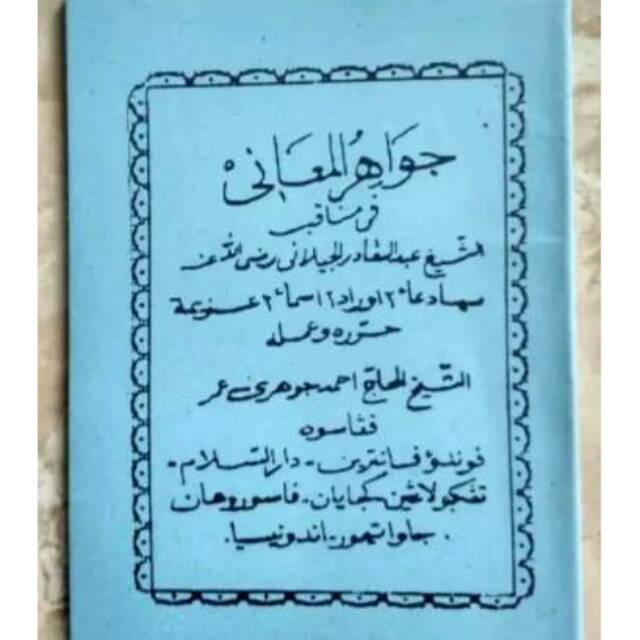 جَوَاهِرُ الْمَعَانِى
فى مناقب
الشّيخ عبد القادر الجيلانى رضى الله عنه
سهادعا٢ اوراد٢ اسما٢ عزيمة
حرّره وعمله
الشّيخ الحاج احمد جوهرى عمر
فڠاسوه
فوندؤ فسانترين - دار السّلام -
تڠڮولاڠين كجايان - فاسوروهان
جاوا تيمور - اندونيسيا.